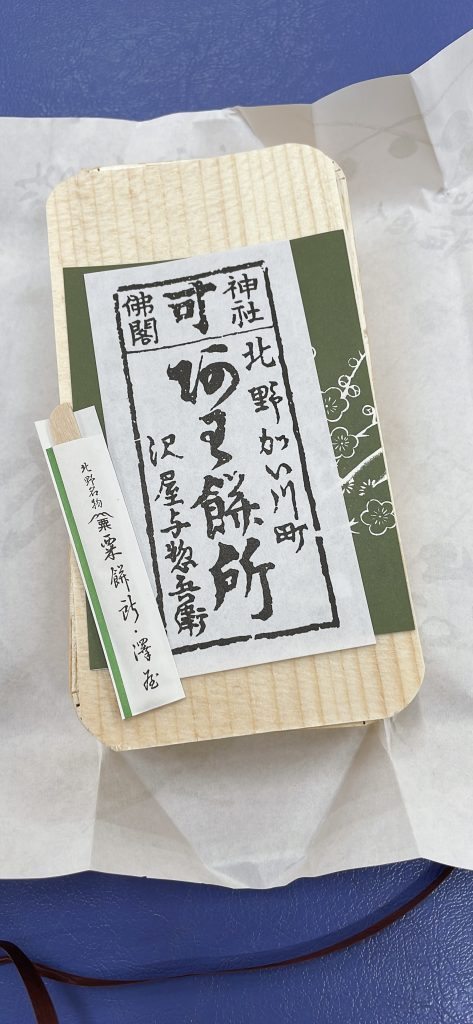 神社
可
佛閣
北野かい川町
阿わ餅所
沢屋与惣兵衛
北野名物 粟 粟餅所・澤屋